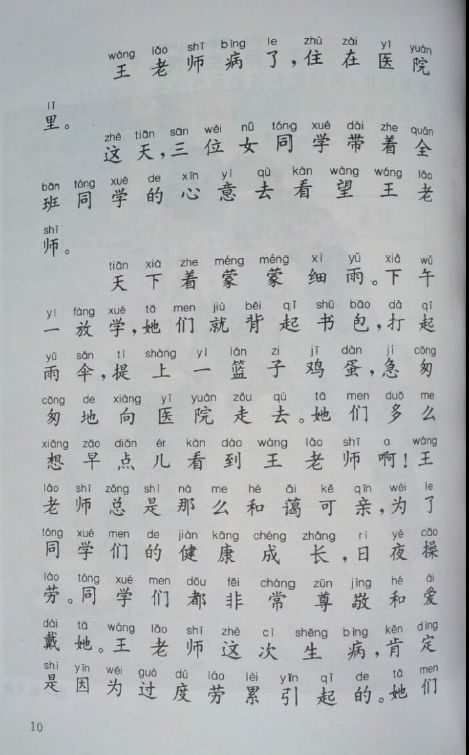 wáng lǎo shī bìng le zhù zài yī yuàn
王老师病了,住在医院
lǐ
里。
zhè tiān sān wèi nǚ tóng xué dài zhe quán
这天,三位女同学带着全
bān tóng xué de xīn yì qù kàn wàng wáng lǎo
班同学的心意去看望王老
shī
师。
tiān xià zhe méng méng xì yǔ xià wǔ
天下着蒙蒙细雨。下午
yí fàng xué tā men jiù bēi qǐ shū bāo dǎ qǐ
一放学,她们就背起书包,打起
yǔ sǎn tí shàng yì lán zi jī dàn jí cōng
雨伞,提上一篮子鸡蛋,急匆
cōng de xiàng yī yuàn zǒu qù tā men duō me
匆地向医院走去。她们多么
xiǎng zǎo diǎn ér kàn dào wáng lǎo shī a wáng
想早点儿看到王老师啊!王
lǎo shī zǒng shì nà me hé ǎi kě qīn wèi le
老师总是那么和蔼可亲,为了
tóng xué men de jiàn kāng chéng zhǎng rì yè cāo
同学们的健康成长,日夜操
láo tóng xué men dōu fēi cháng zūn jìng hé ài
劳。同学们都非常尊敬和爱
dài tā wáng lǎo shī zhè cì shēng bìng kěn dìng
戴她。王老师这次生病,肯定
shì yīn wéi guò dù láo lèi yǐn qǐ de tā men
是因为过度劳累引起的。她们
10